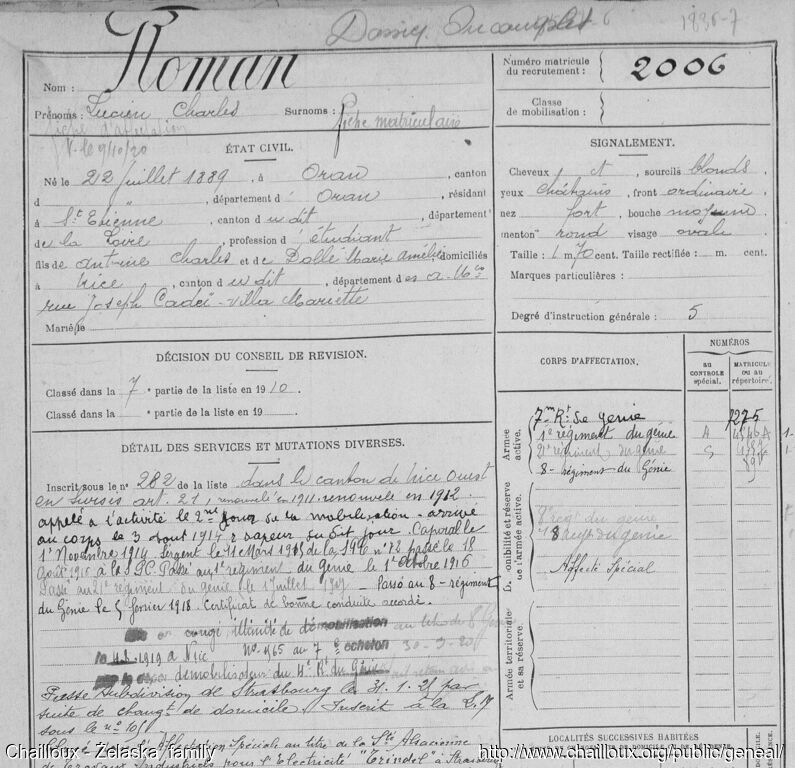 Dossier Incomplet 6
1836-7
Nom : ROMAN
Numéro matricule du recrutement : 2006
Prénoms : Lucien Charles Surnoms : fiche matriculaire
fiche d'affectation
V. le 9/10/20
Classe de mobilisation :
ÉTAT CIVIL.
Né le 22 juillet 1889, à Oran, canton
d " , département d' Oran, résidant
à St Etienne, canton du dit, département
de la Loire, profession d' étudiant
fils de Antoine Charles et de Dollé Marie Amélie domiciliés
à Nice, canton du dit, département des A. Mes
rue Joseph Cadéi - Villa Mariette
Marié le
SIGNALEMENT.
Cheveux et , sourcils blonds
yeux châtains, front ordinaire
nez fort, bouche moyenne
menton rond visage ovale
Taille : 1 m. 70 cent. Taille rectifiée : m. cent.
Marques particulières :
Degré d'instruction générale : 5
DÉCISION DU CONSEIL DE REVISION.
Classé dans la 7e partie de la liste en 1910
Classé dans la e partie de la liste en 19
CORPS D'AFFECTATION.
NUMÉROS
au contrôle spécial.
matricule ou au répertoire.
Armée active.
7me Rt de Génie 7275
1er régiment du génie A 4546A 1-
21e régiment du génie
8e régiment du Génie
Disponibilité et réserve de l'armée active.
8e régt du génie
18 du génie
Affecté Spécial
Armée territoriale et sa réserve.
DÉTAIL DES SERVICES ET MUTATIONS DIVERSES.
Inscrit sous le n° 282 de la liste dans le canton de Nice Ouest
en sursis art. 21, renouvelé en 1911. renouvelé en 1912.
appelé à l'activité le 2me jour de la mobilisation - arrivé
au corps le 3 août 1914 & sapeur du dit jour. Caporal le
1er Novembre 1914. Sergent le 11 Mars 1915 de la 19/6 n° 12 passé le 18
Août 1916 à la Passé au 1er régiment du génie le 1er Octobre 1916
Passé au 21e régiment du génie le 1 Juillet 1917 - Passé au 8e régiment
du Génie le 5 Février 1918. Certificat de bonne conduite accordé.
en congé illimité de démobilisation au 8 Génie
le 1919 à Nice N° 965 au 7e échelon 30-3-20
démobilisateur du 4e Rt du Génie
Passé Subdivision de Strasbourg le 31.1.21 par
suite de changt de domicile. Inscrit à la
sous le n° 101
Affectation Spéciale au titre de la Sté Alsacienne
de Travaux Industriels pour l'Electricité "Trindel" à Strasbourg
LOCALITÉS SUCCESSIVES HABITÉES
Chailloux - Zelaska family
http://www.chailloux.org/public/geneal/